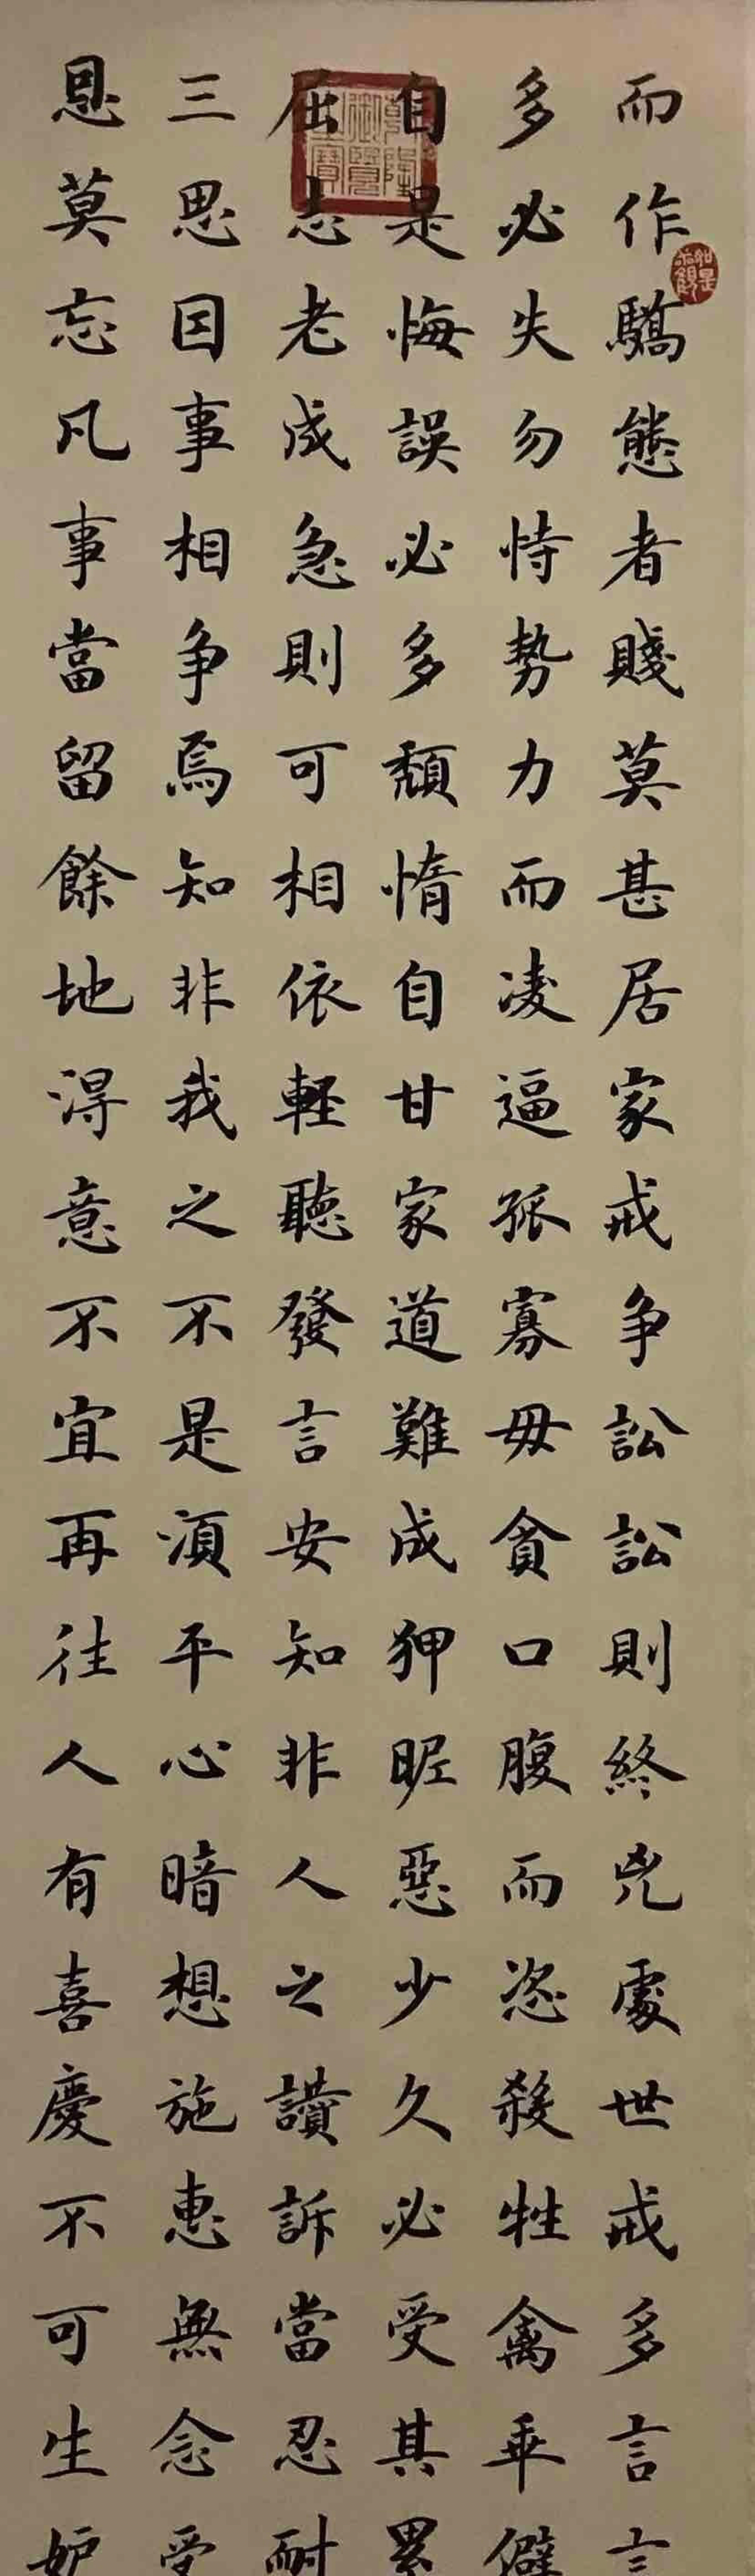 而作驕態者賤莫甚居家戒争訟訟則終兇處世戒多言言
多必失勿恃勢力而凌逼孤寡毋貪口腹而恣殺牲禽乖僻
自是悔誤必多頹惰自甘家道難成狎昵惡少久必受其累
屈志老成急則可相依輕聽發言安知非人之讃訴當忍耐
三思因事相争焉知非我之不是須平心暗想施惠無念受
恩莫忘凡事當留餘地得意不宜再往人有喜慶不可生妒
乾隆御覽之寶